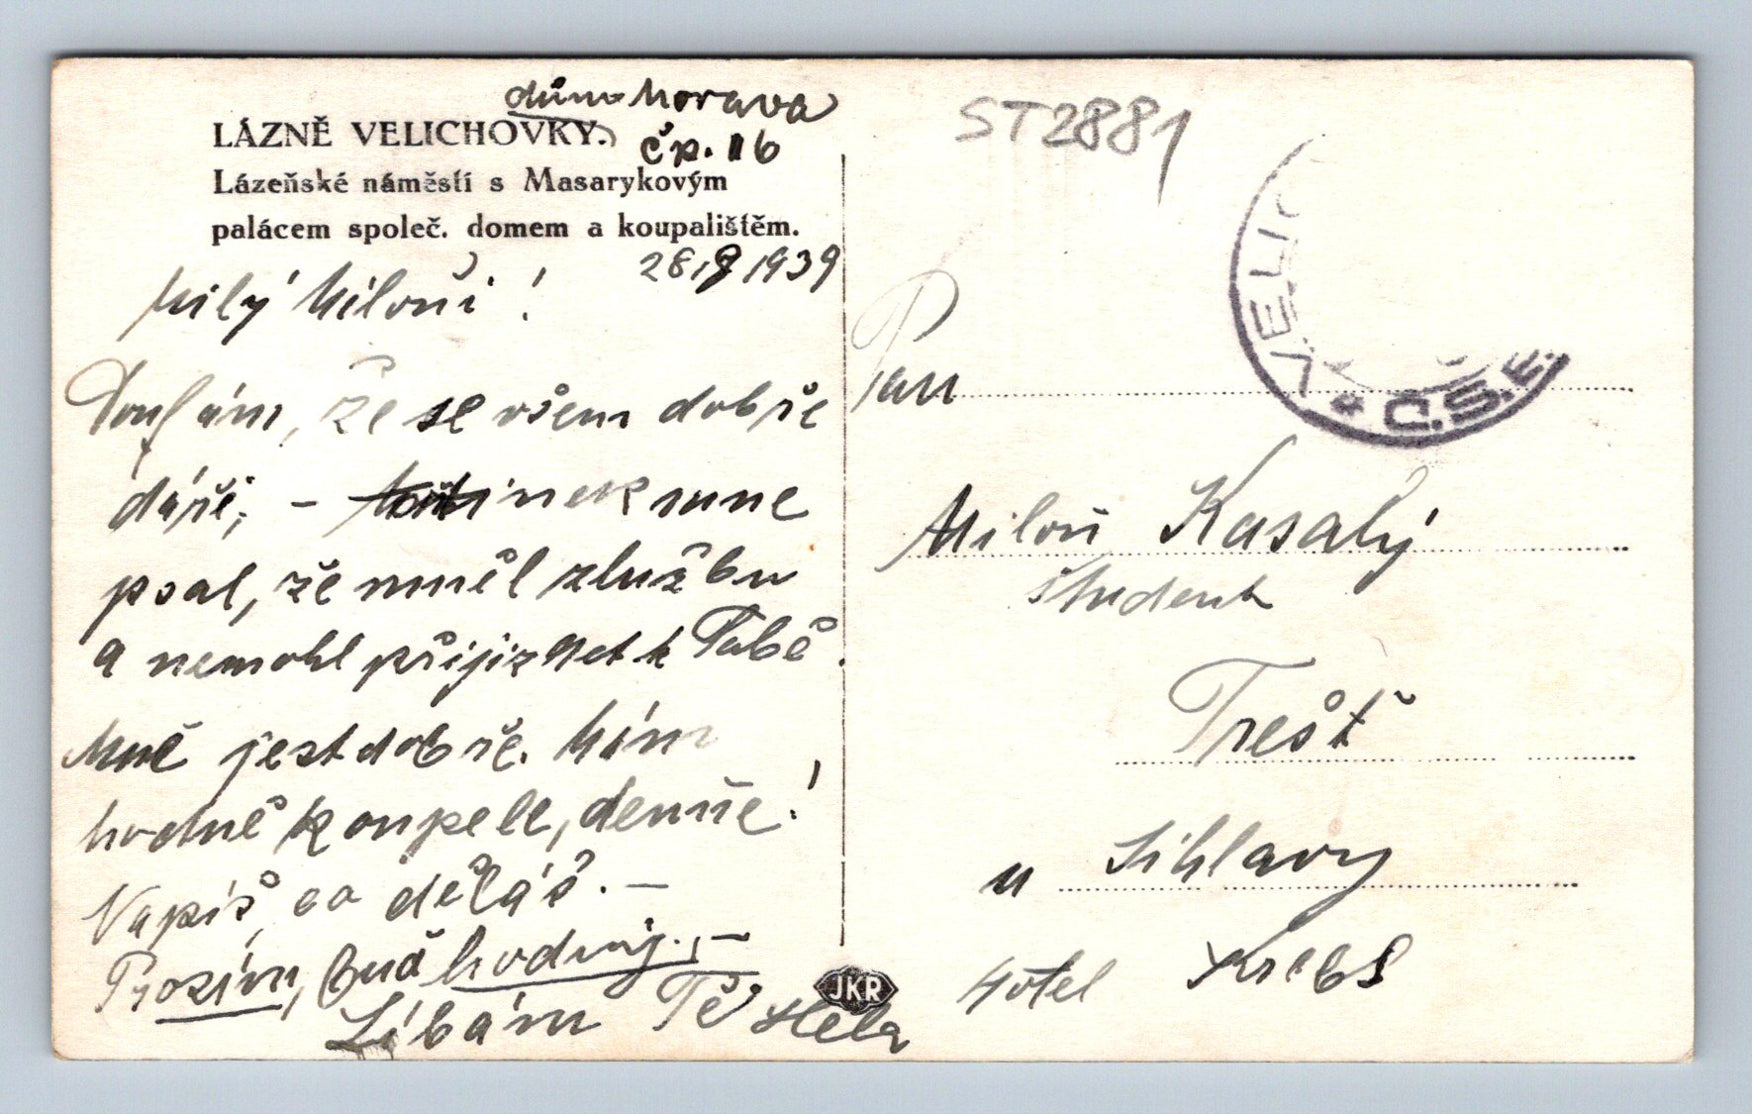 dům Morava
LÁZNĚ VELICHOVKY.
čp. 16
Lázeňské náměstí s Masarykovým
palácem společ. domem a koupalištěm.
28/8 1939
Milý Miloši!
Doufám, že se všem dobře
dáří, – tatínek mne
psal, že měl službu
a nemohl přijizdet k Tobě.
Mně jest dobře. Mám
hodně koupelí, denně!
Napiš, co děláš. –
Prosím, buď hodný. –
Líbám Tě Hela
JKR
ST2881
VELIC
* C.S.P.
Pan
Miloš Kasalý
študent
Trešť
u Jihlavy
Hotel Krebs